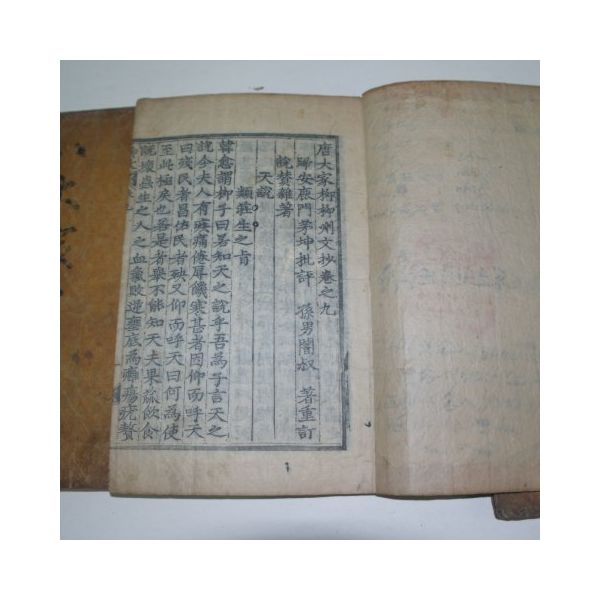 唐大家柳柳州文抄卷之九
歸安鹿門茅坤批評 孫男闇叔 著重訂
說贊雜著
天說
類莊生之旨
韓愈謂柳子曰若知天之說乎吾爲子言天之
說今夫人有疾痛倦辱饑寒甚者因仰而呼天
曰殘民者昌佑民者殃又仰而呼天曰何爲使
至此極戾也若是者擧不能知天夫果蓏飮食
旣壞蟲生之人之血氣敗逆壅底爲癰瘍疣贅